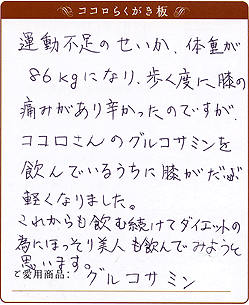 ココロらくがき板
運動不足のせいか、体重が
86kgになり、歩く度に膝の
痛みがあり辛かったのですが、
ココロさんのグルコサミンを
飲んでいるうちに膝がだいぶ
軽くなりました。
これからも飲む続けてダイエットの
為にほっそり美人も飲んでみようと
思います。
ご愛用商品: グルコサミン